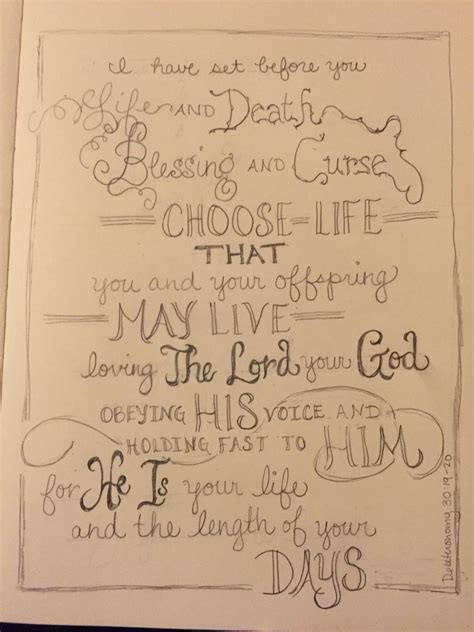 I have set before you
Life AND Death
Blessing AND Curse
CHOOSE LIFE
THAT
you and your offspring
MAY LIVE
loving The Lord your God
OBEYING HIS VOICE AND
HOLDING FAST TO HIM
for He Is your life
and the length of your
DAYS
Deuteronomy 30:19-20